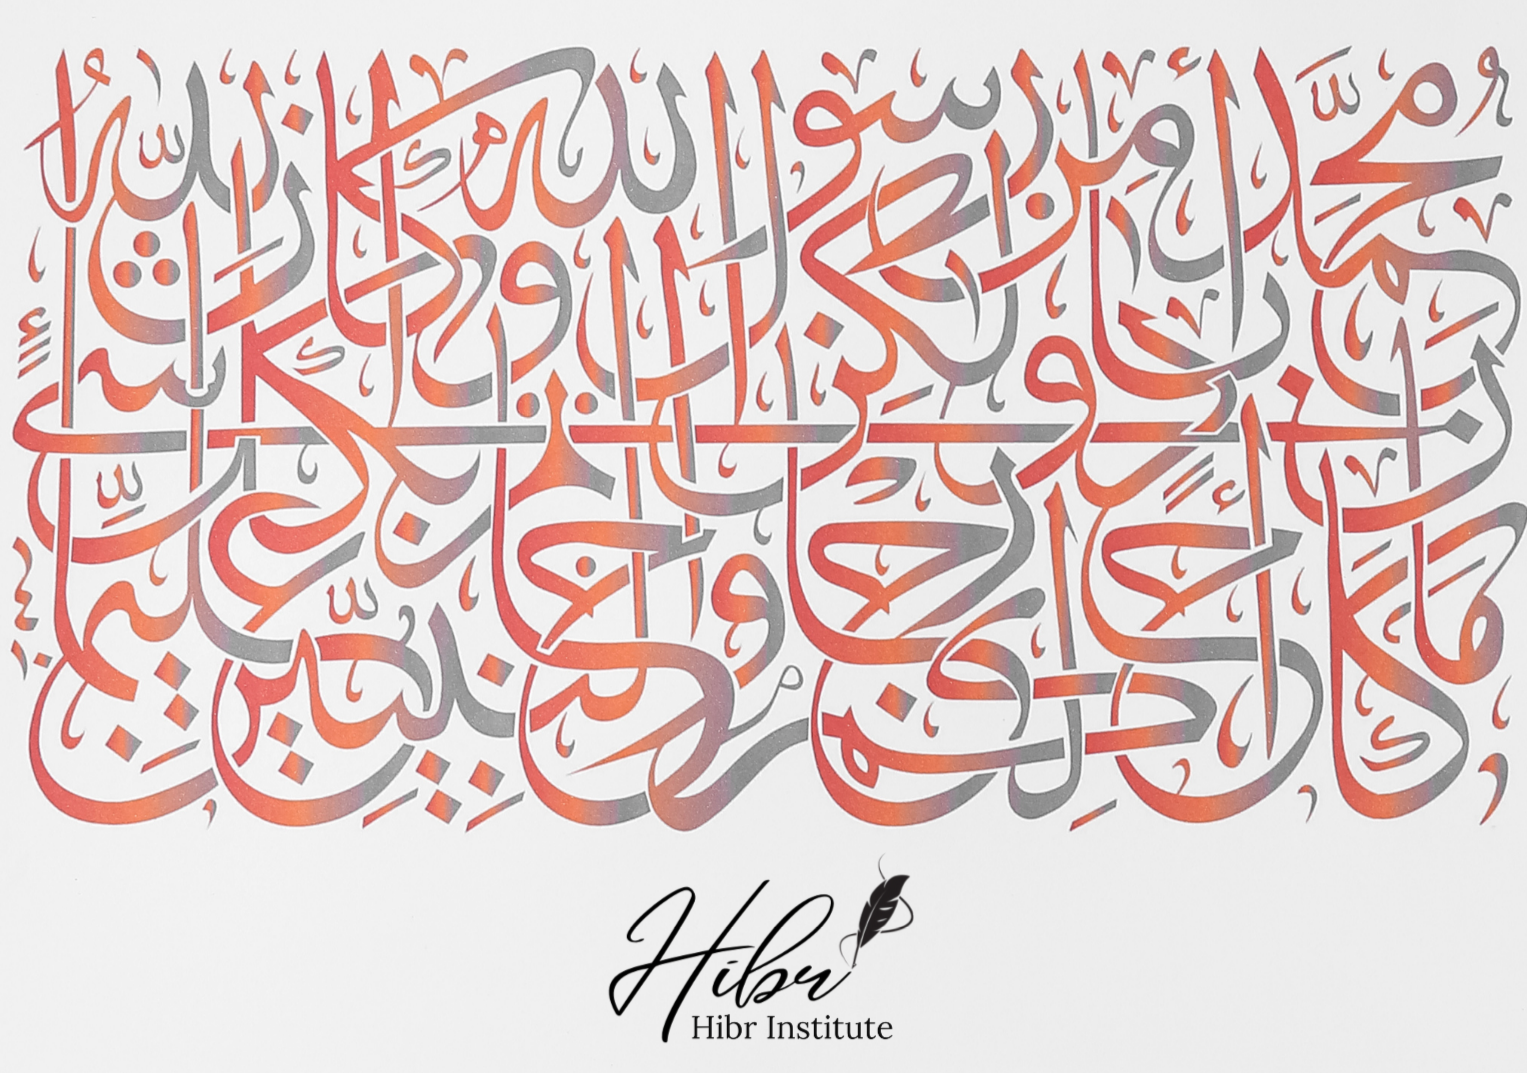 مَا كَانَ مُحَمَّدٌ أَبَا أَحَدٍ مِنْ رِجَالِكُمْ وَلَكِنْ رَسُولَ اللَّهِ وَخَاتَمَ النَّبِيِّينَ وَكَانَ اللَّهُ بِكُلِّ شَيْءٍ عَلِيمًا
Hibr
Hibr Institute